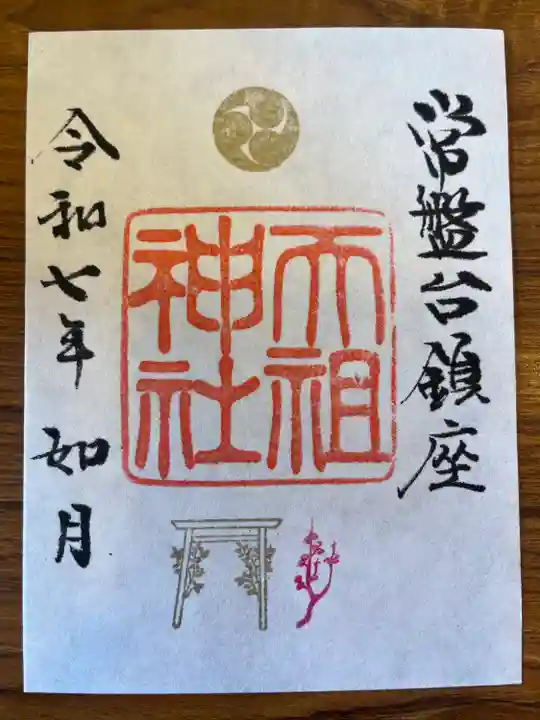 常盤台鎮座
天祖
神社
令和七年 如月